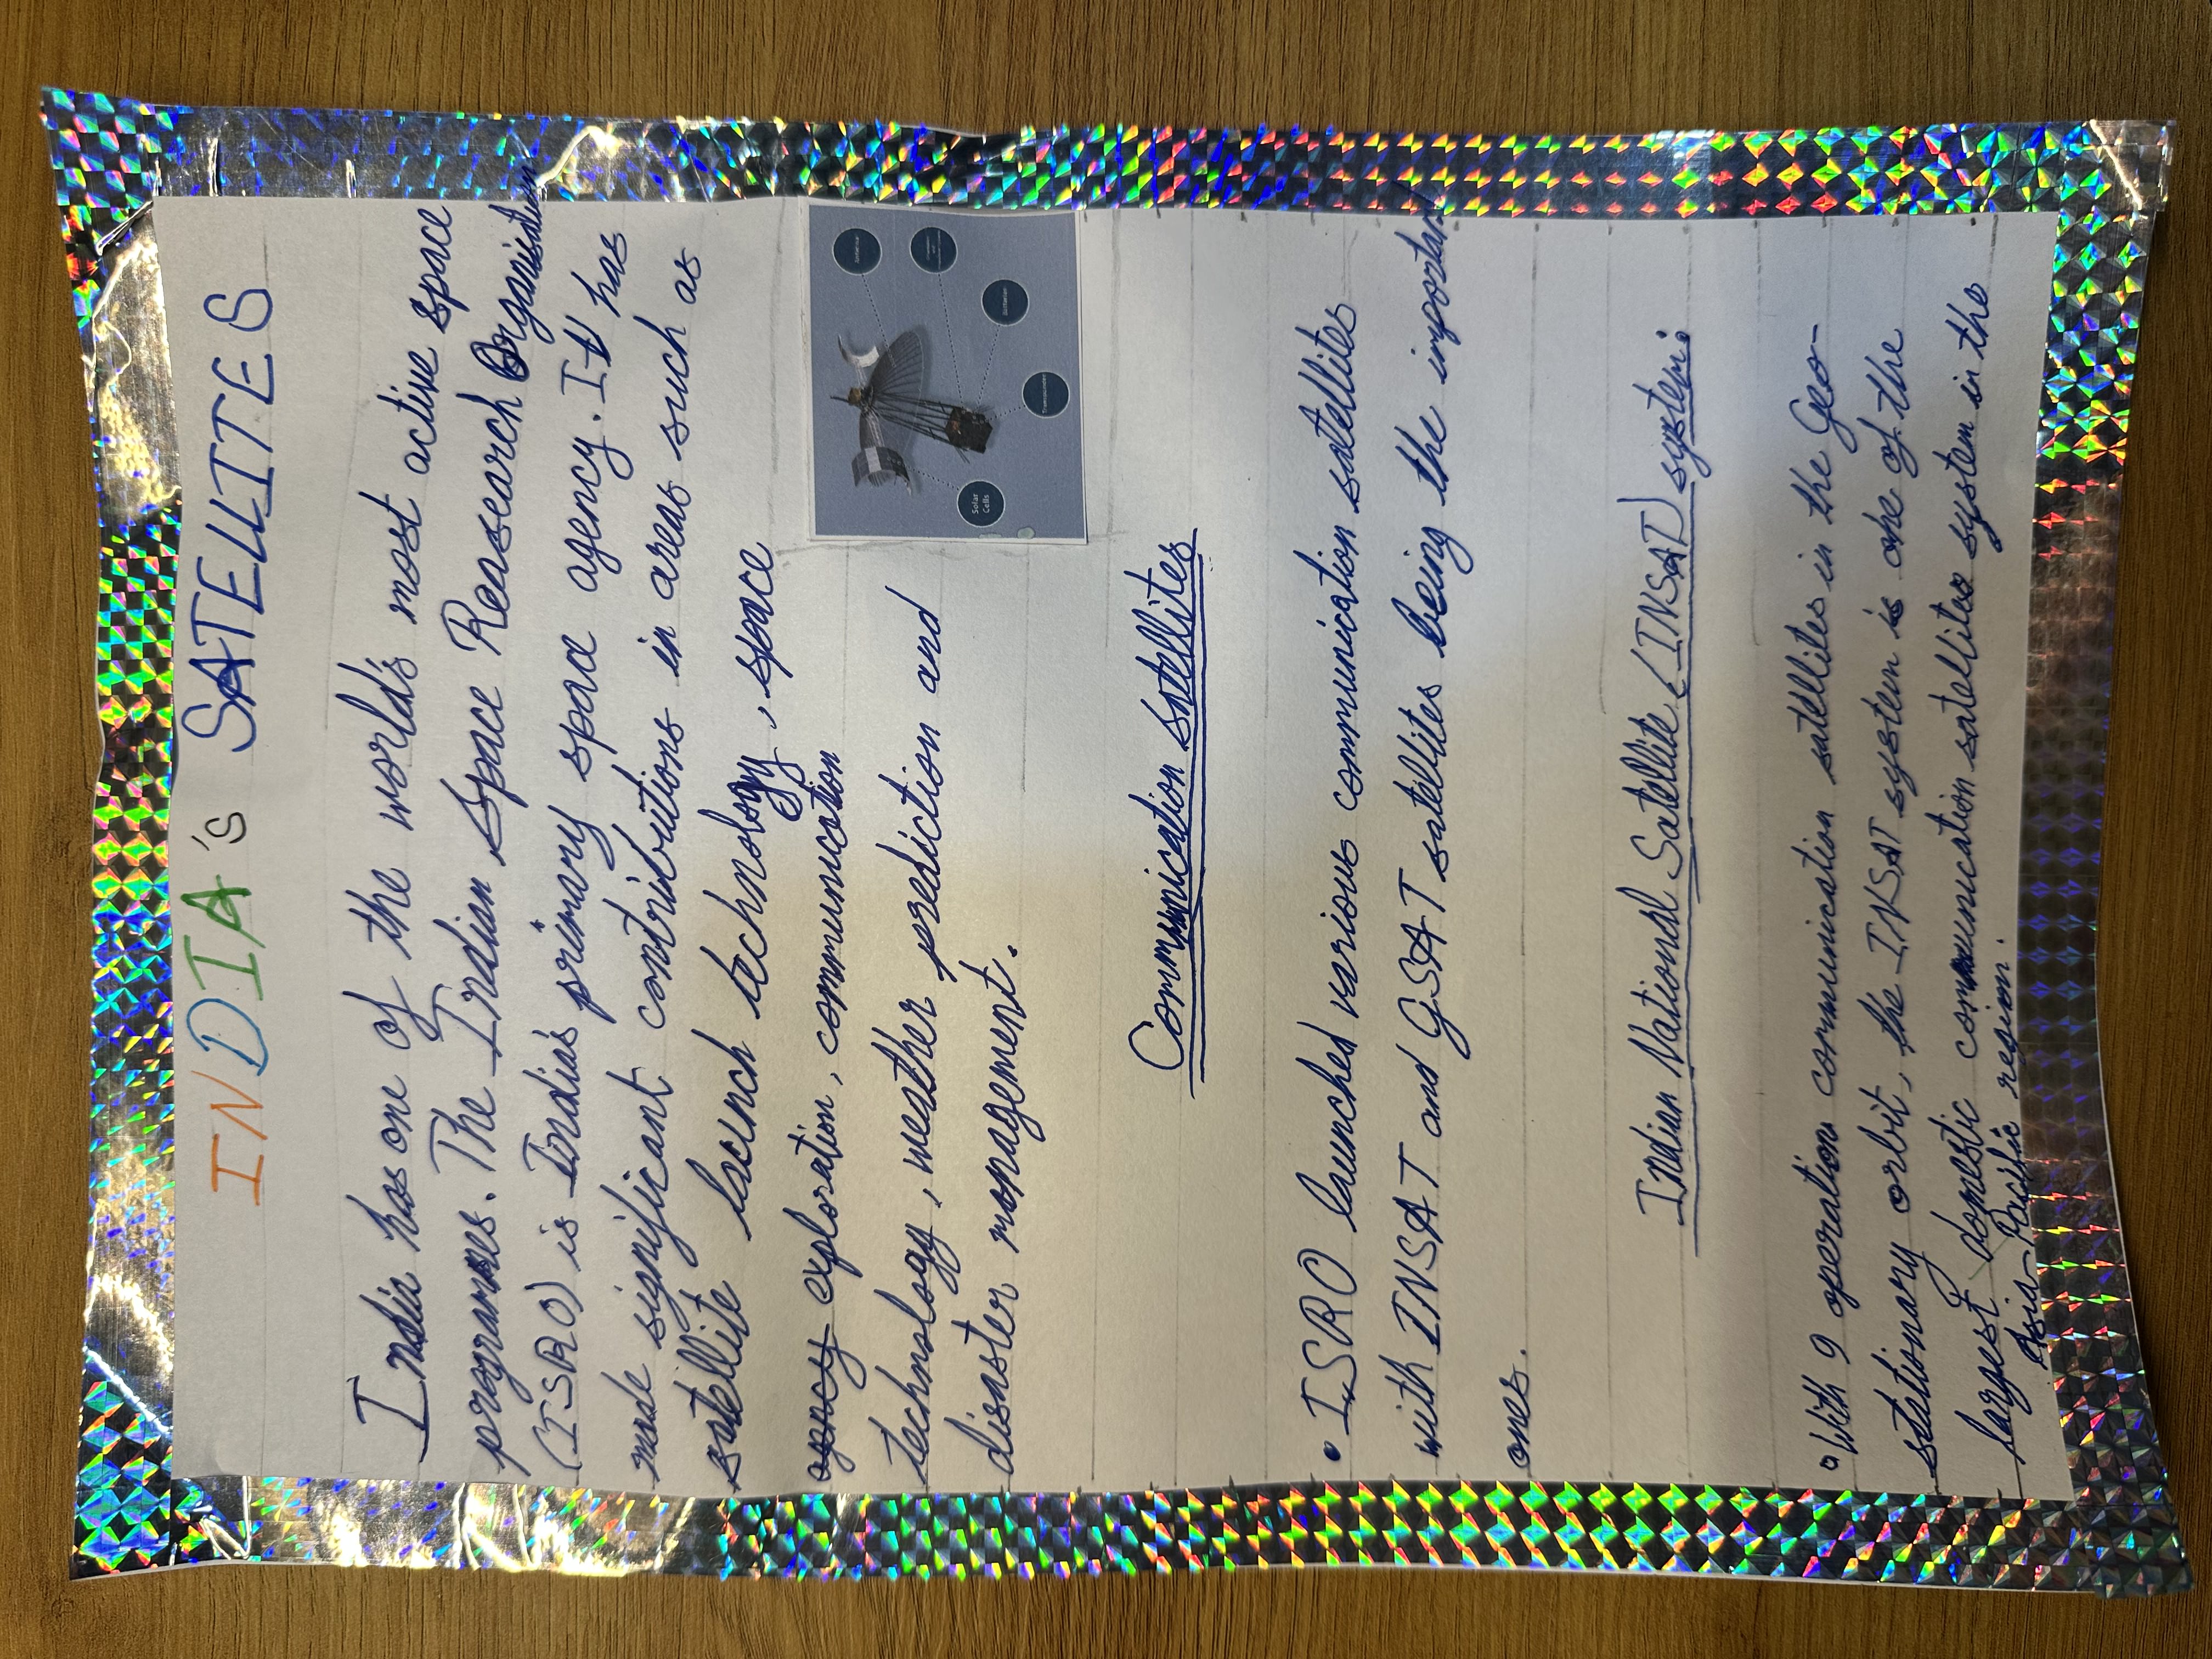 INDIA's SATELLITES
India has one of the world's most active space
programmes. The Indian Space Reasearch Organisation
(ISRO) is India's primary space agency. It has
made significant contributions in areas such as
satellite launch technology, space
agency exploration, communication
technology, weather prediction and
disaster management.
Solar
Cells
Batteries
Transponder
Communication satellites
• ISRO launched various communication satellites
with INSAT and GSAT satellites being the important
ones.
Indian National Satellite (INSAT) system:
• With 9 operation communication satellites in the Geo-
stationary orbit, the INSAT system is one of the
largest domestic communication satellites system in the
Asia-Pacific region.